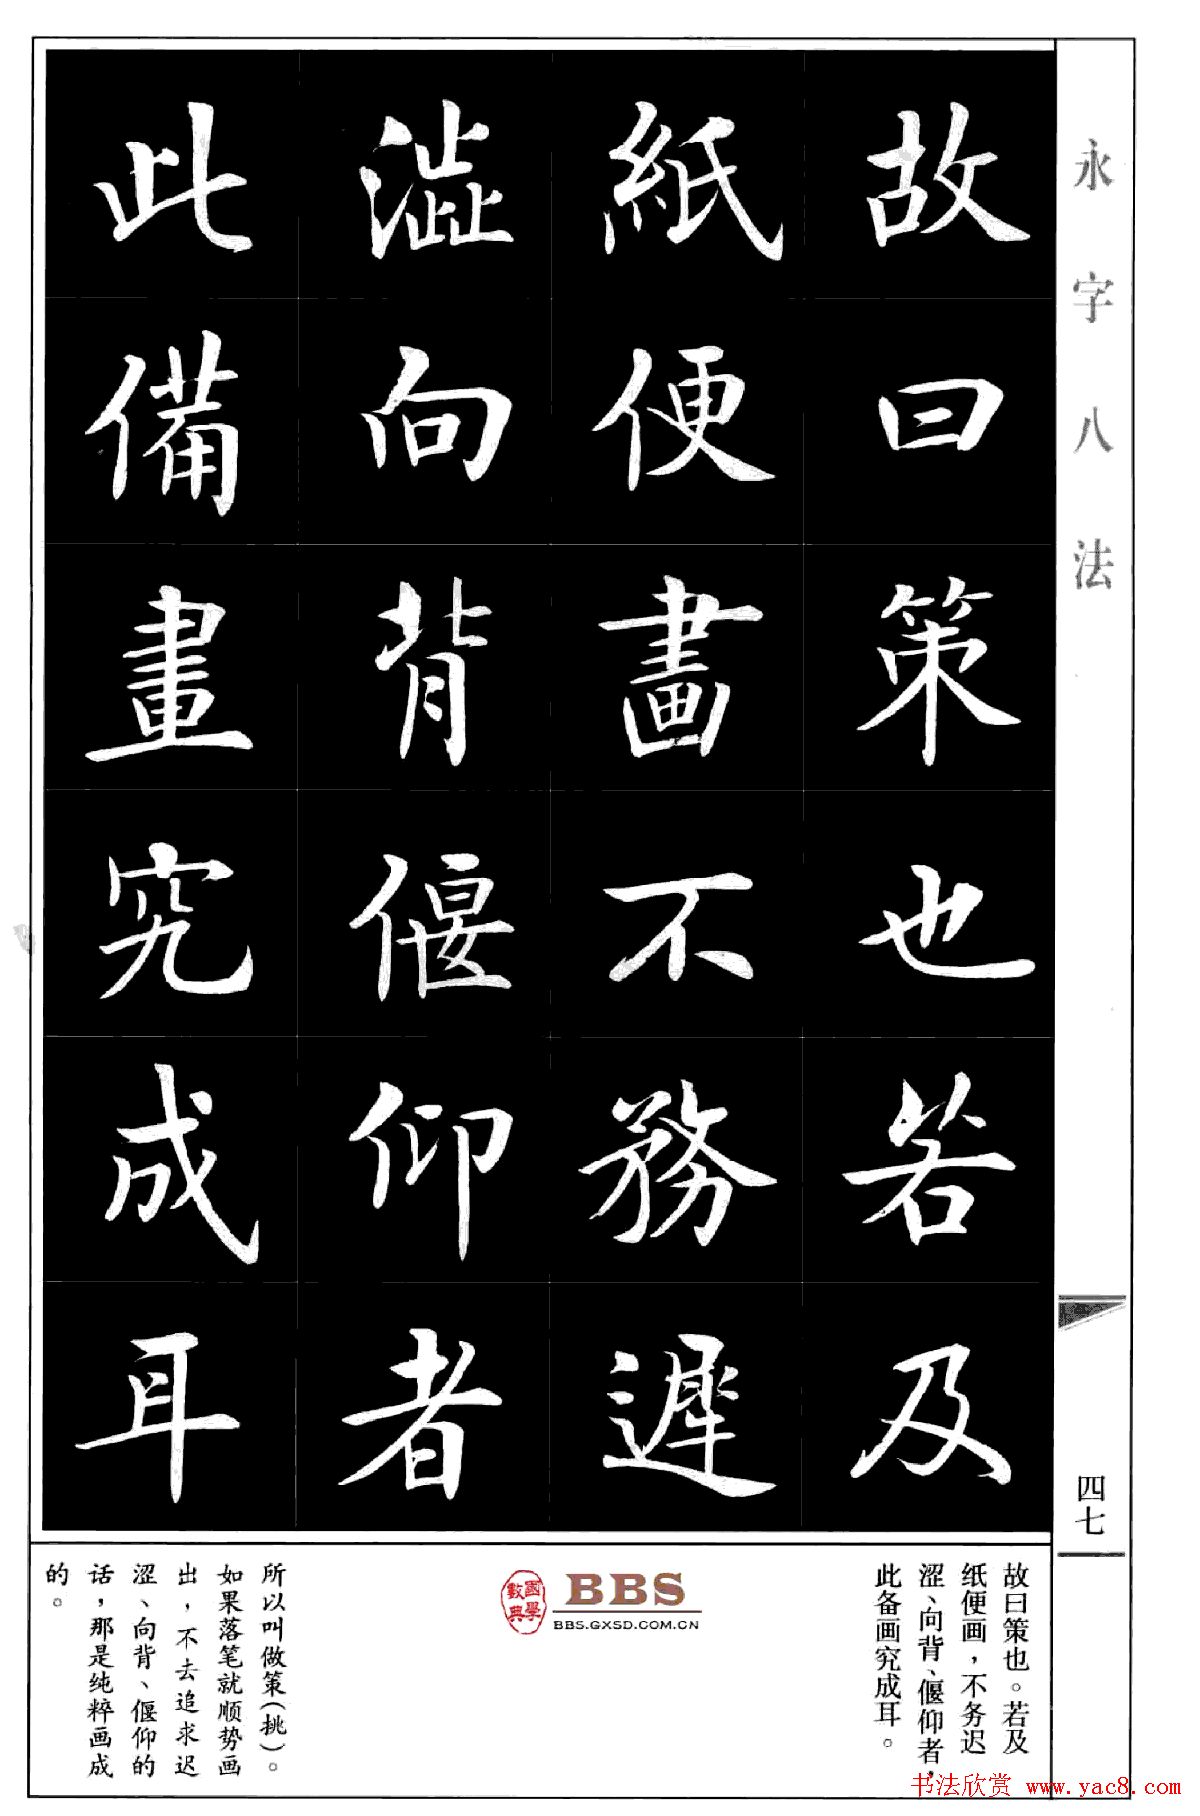 永字八法
故曰策也若及
紙便畫不務遲
澁向背偃仰者
此備畫究成耳
四七
故曰策也。若及
纸便画，不务迟
涩、向背、偃仰者，
此备画究成耳。
國學數典
BBS
BBS.GXSD.COM.CN
所以叫做策(挑)。
如果落笔就顺势画
出，不去追求迟
涩、向背、偃仰的
话，那是纯粹画成
的。
书法欣赏 www.yac8.com